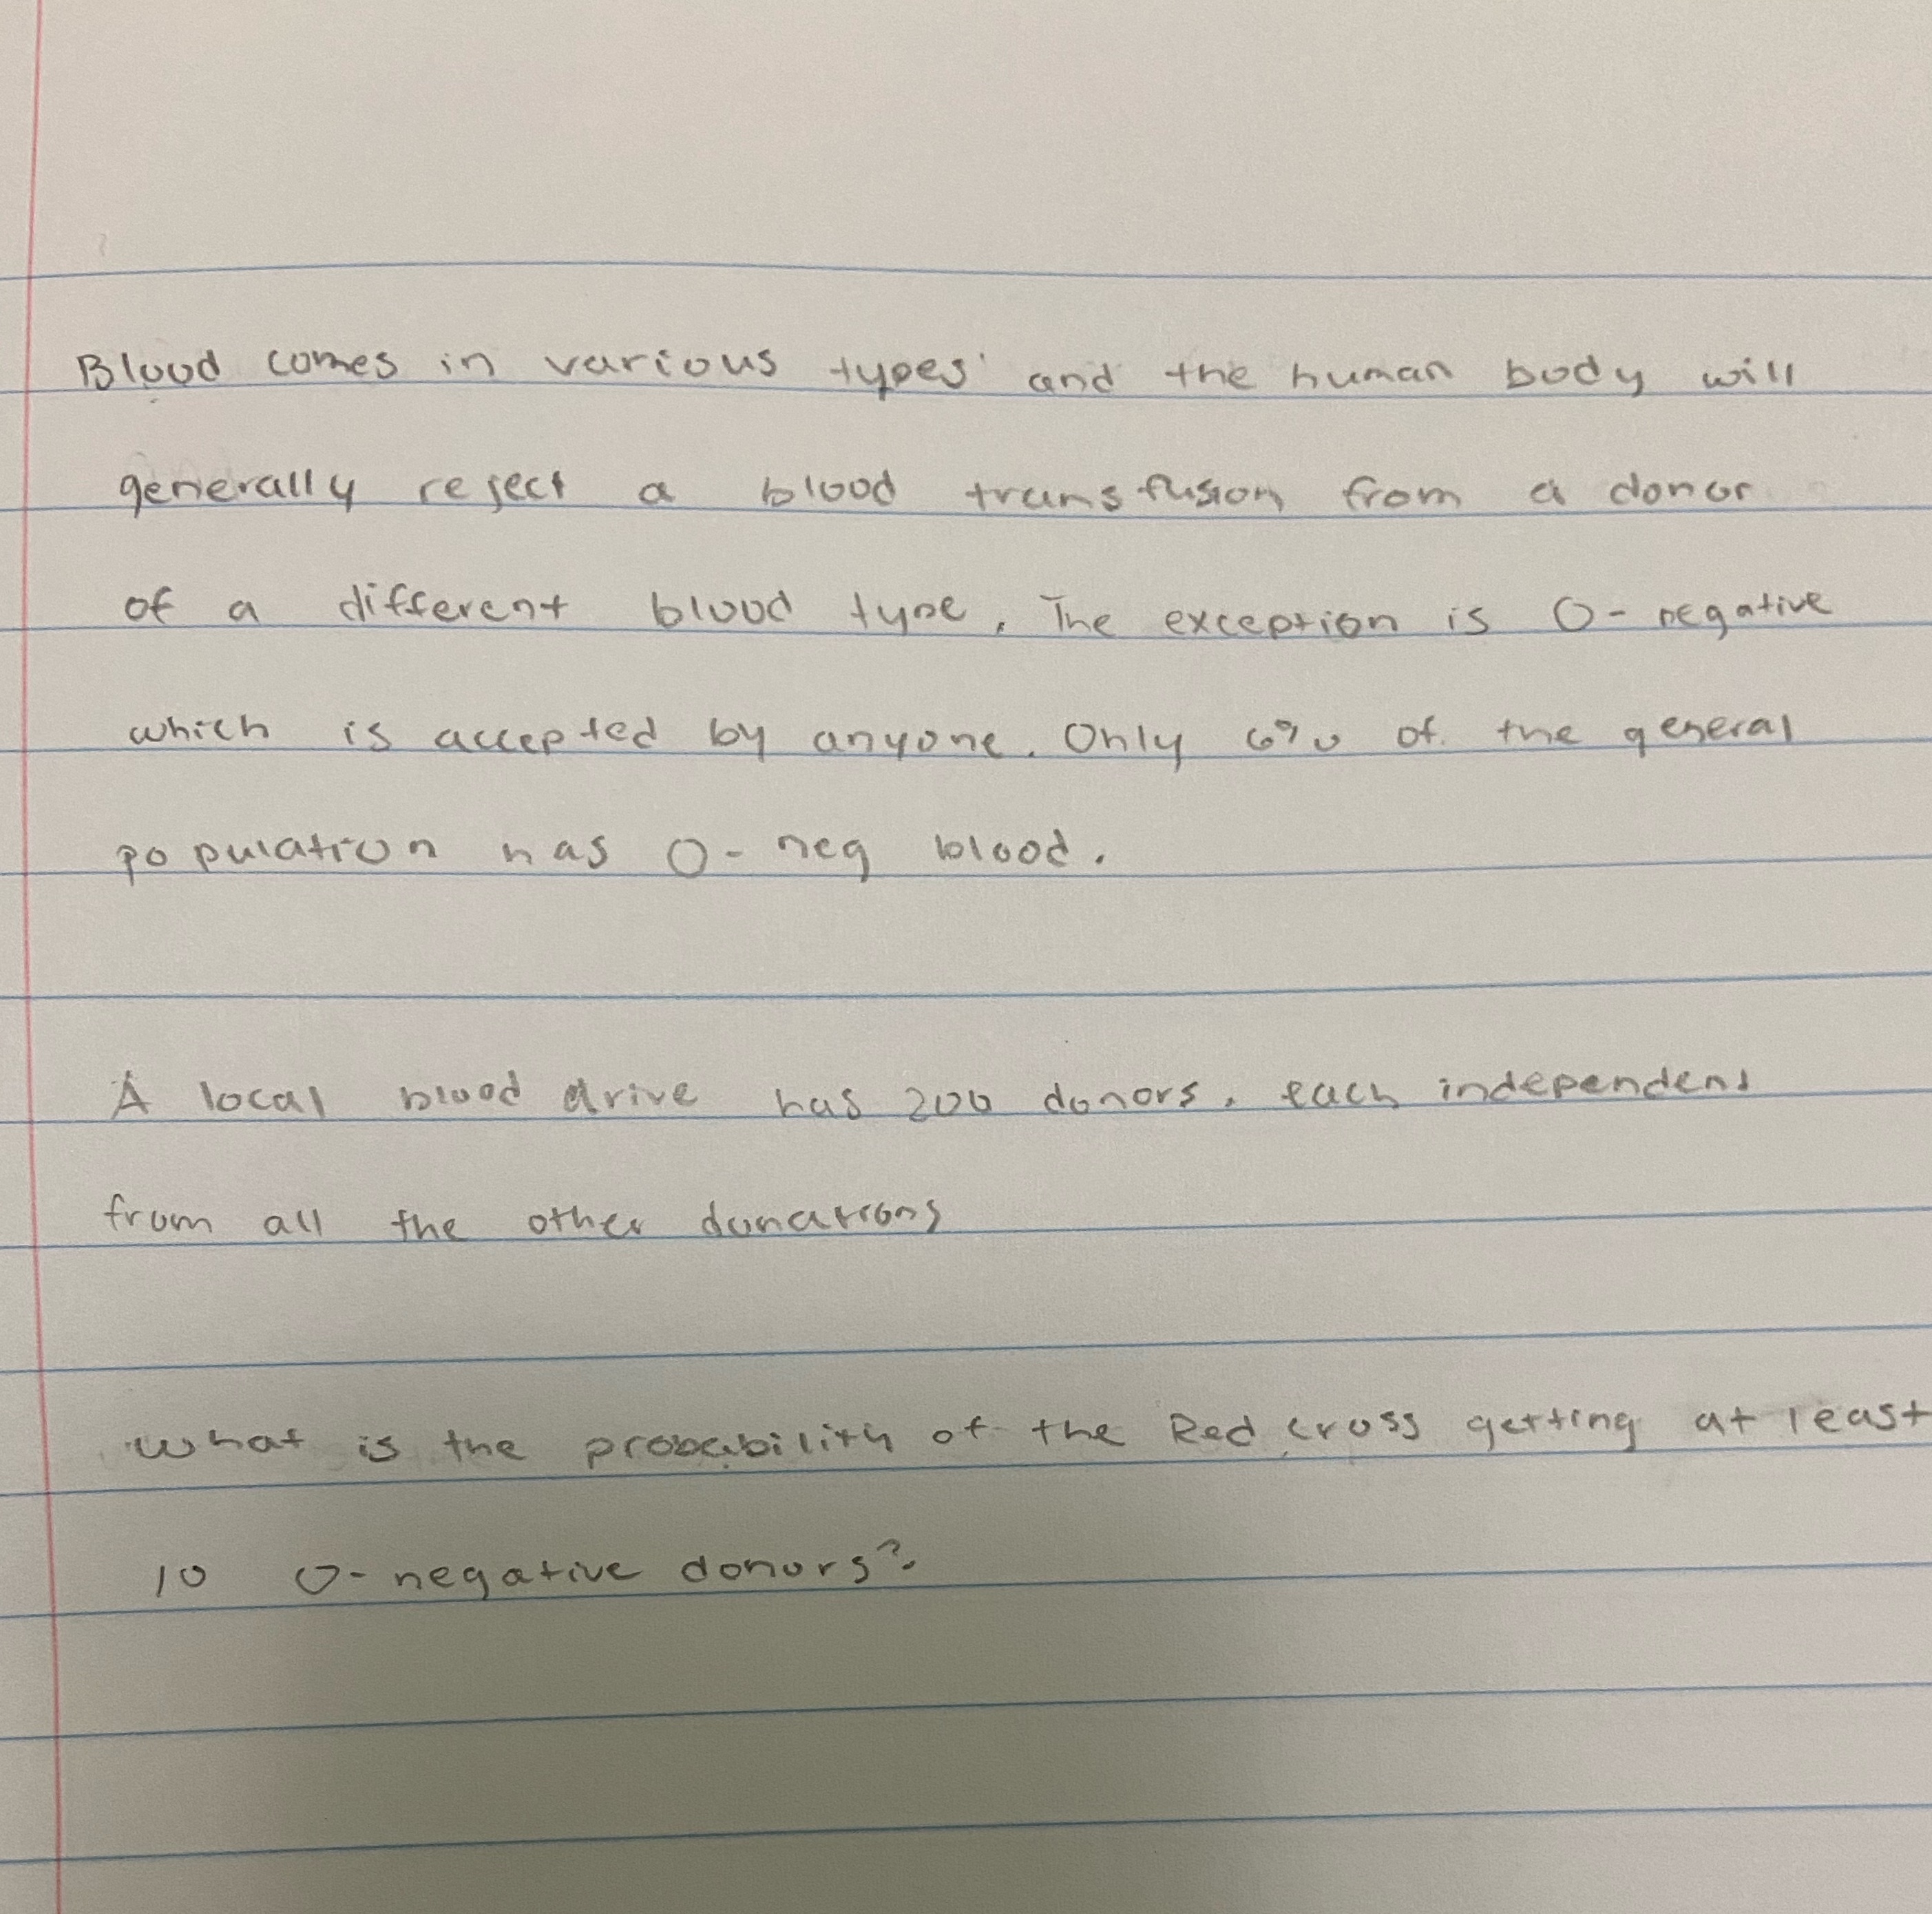 Blood comes in various types and the human body will
generally reject a blood transfusion from a donor
of a different blood type. The exception is O-negative
which is accepted by anyone. Only 6% of the general
population has O-neg blood.
A local blood drive has 200 donors, each independent
from all the other donations
What is the probability of the Red Cross getting at least
10 O-negative donors?